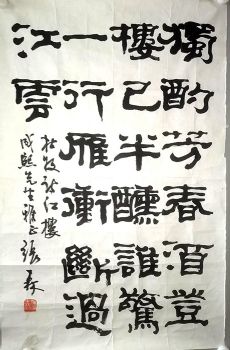 獨酌芳春酒登
樓已半醺誰驚
一行雁衝斷過
江雲
杜牧詩江樓
先生雅正 張森